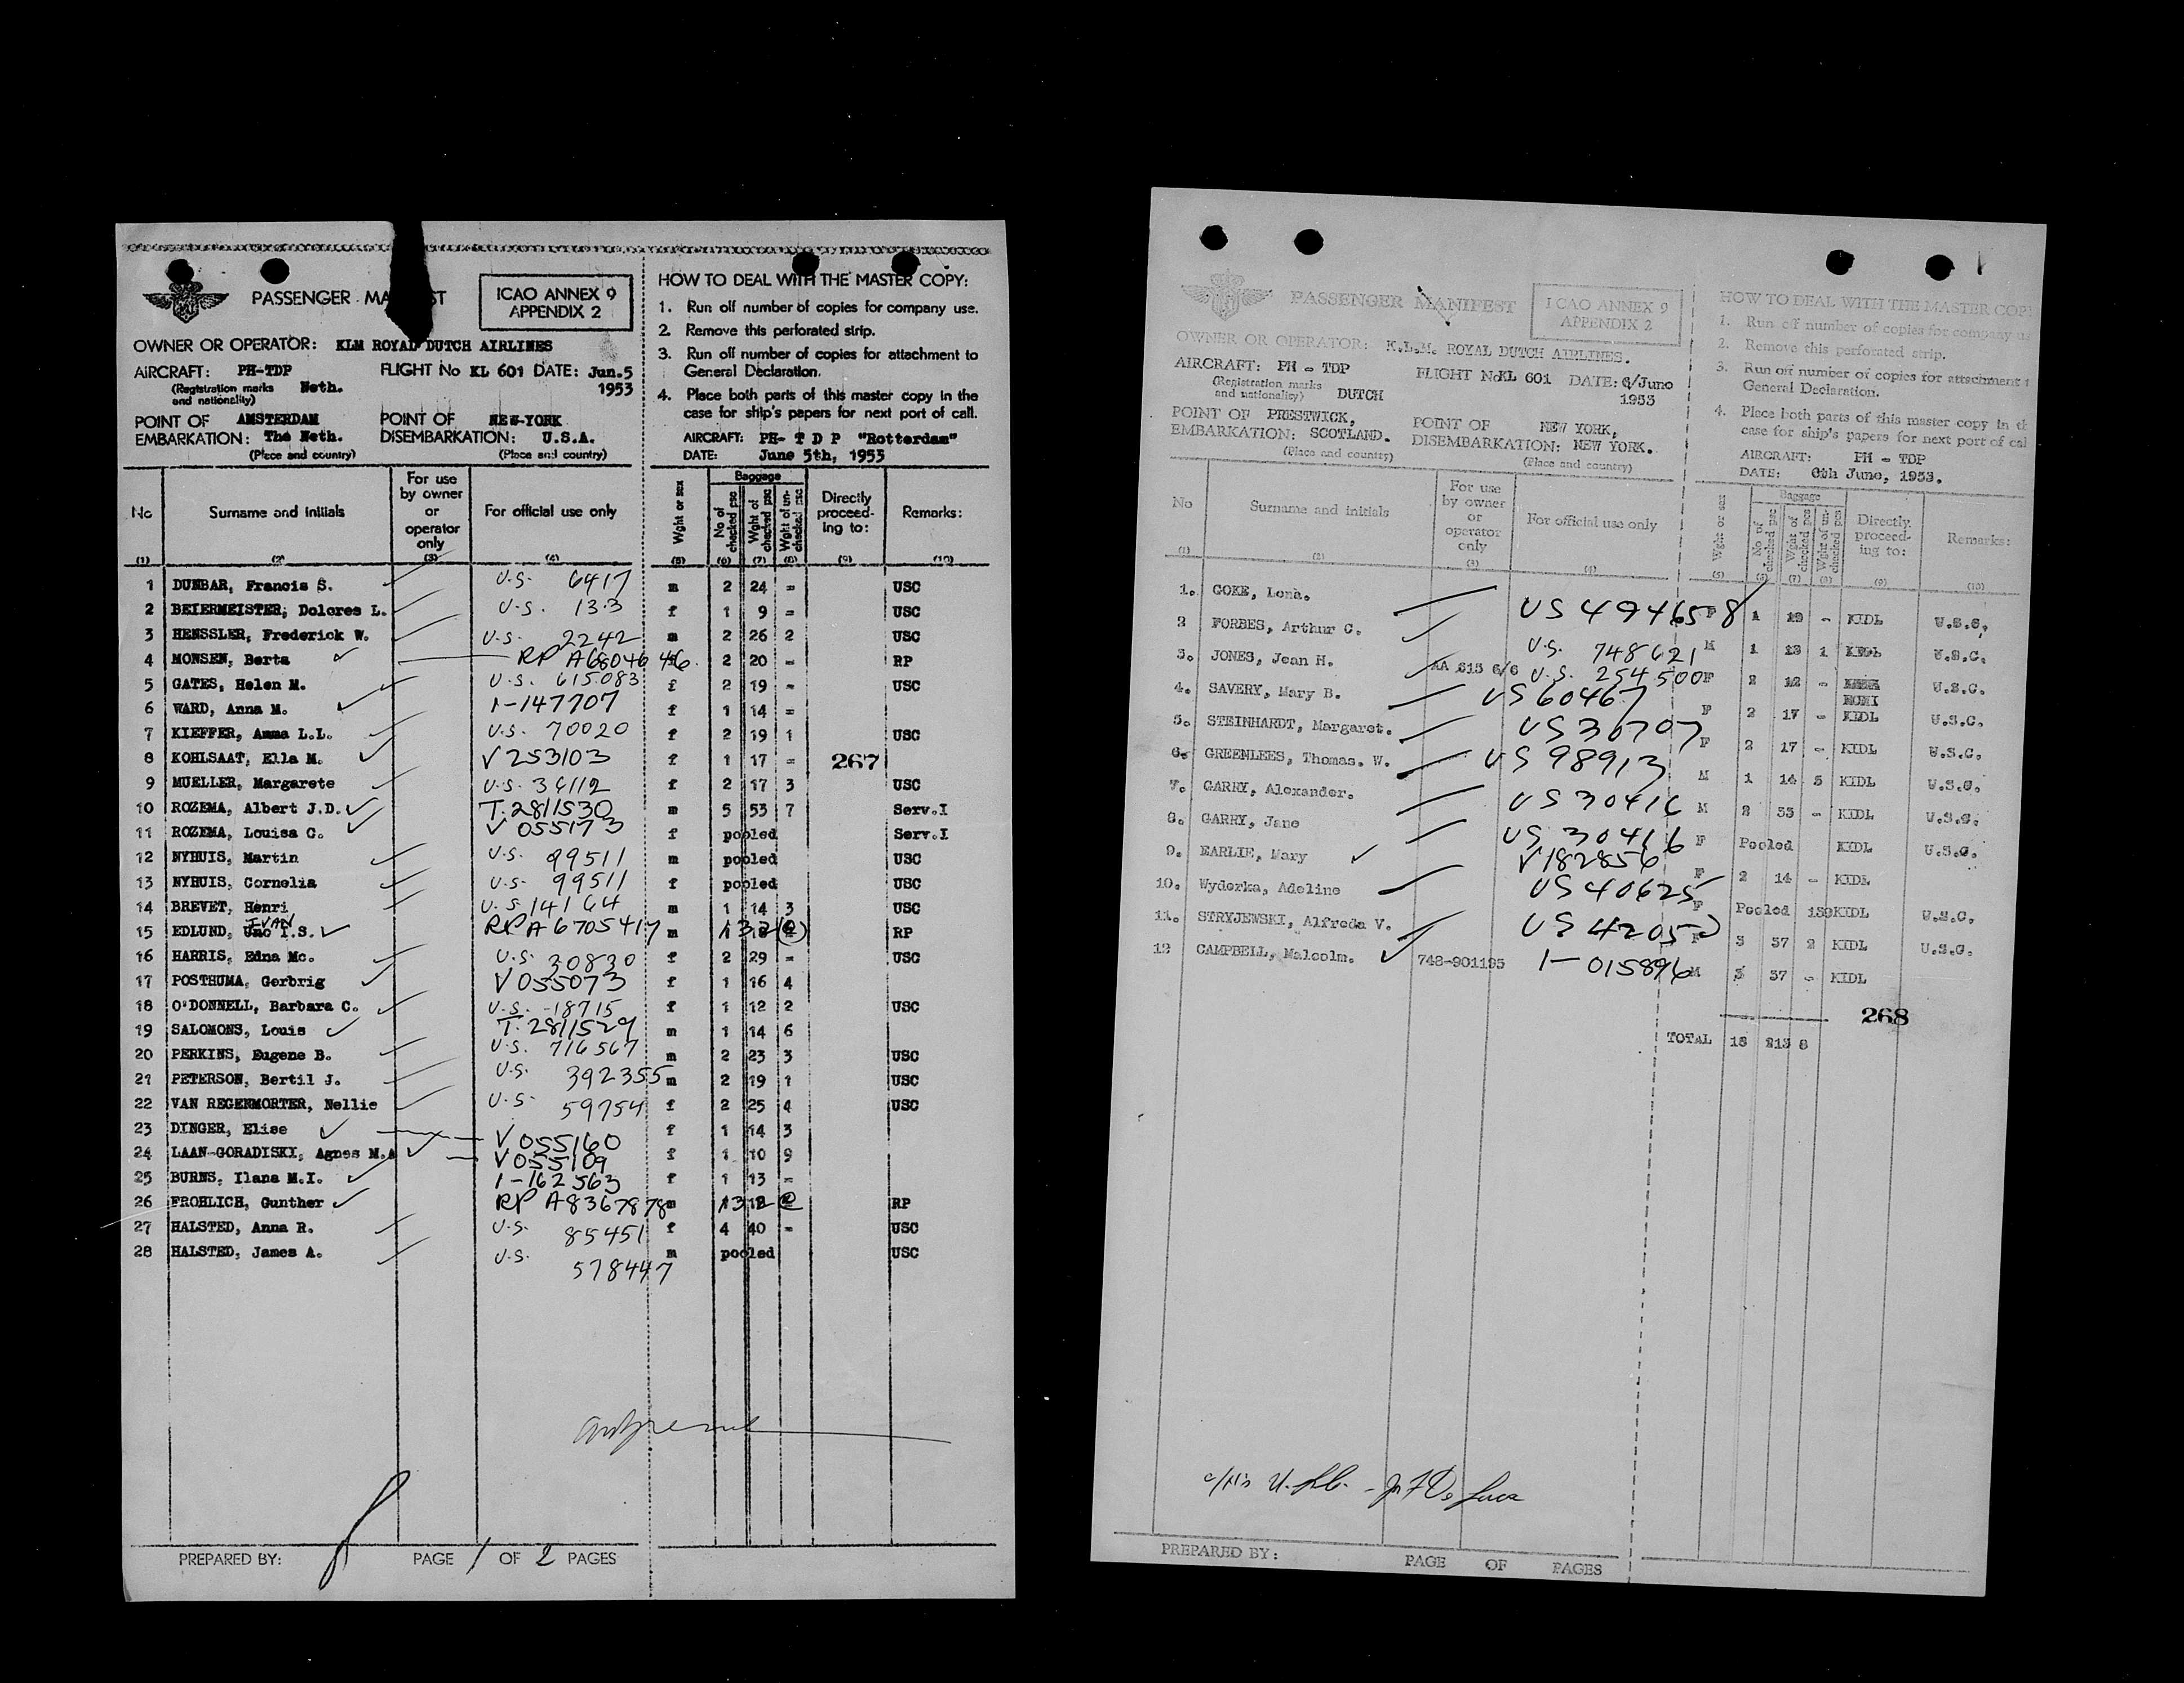 PASSENGER MA ST
ICAO ANNEX 9
APPENDIX 2
OWNER OR OPERATOR: KLM ROYAL DUTCH AIRLINES
AIRCRAFT: PH-TDP FLIGHT No KL 601 DATE: Jun.5
(Registration marks and nationality) Neth. 1953
POINT OF EMBARKATION: AMSTERDAM The Neth. POINT OF DISEMBARKATION: NEW-YORK U.S.A.
(Place and country) (Place and country)
HOW TO DEAL WITH THE MASTER COPY:
1. Run off number of copies for company use.
2. Remove this perforated strip.
3. Run off number of copies for attachment to
General Declaration.
4. Place both parts of this master copy in the
case for ship's papers for next port of call.
AIRCRAFT: PH- T D P "Rotterdam"
DATE: June 5th, 1953
No Surname and initials For use by owner or operator only For official use only Wght or sex Baggage No of checked pcs Wght of checked pcs Wght of un-checked pcs Directly proceed-ing to: Remarks:
(1) (2) (3) (4) (5) (6) (7) (8) (9) (10)
1 DUNBAR, Francis S. U.S. 6417 m 2 24 = USC
2 BEIERMEISTER, Dolores L. U.S. 133 f 1 9 = USC
3 HENSSLER, Frederick W. U.S. 2242 m 2 26 2 USC
4 MONSEN, Berta RP A6804646 2 20 = RP
5 GATES, Helen M. U.S. 615083 f 2 19 = USC
6 WARD, Anna M. 1-147707 f 1 14 =
7 KIEFFER, Amma L.L. U.S. 70020 f 2 19 1 USC
8 KOHLSAAT, Ella M. V 253103 f 1 17 = 267
9 MUELLER, Margarete U.S. 36112 f 2 17 3 USC
10 ROZEMA, Albert J.D. T. 2811530 m 5 53 7 Serv.I
11 ROZEMA, Louisa C. V 055173 f pooled Serv.I
12 NYHUIS, Martin U.S. 99511 m pooled USC
13 NYHUIS, Cornelia U.S- 99511 f pooled USC
14 BREVET, Henri U.S 14164 m 1 14 3 USC
15 EDLUND, IVAN I.S. RP A6705417 m 132 RP
16 HARRIS, Edna Mc. U.S. 30830 f 2 29 - USC
17 POSTHUMA, Gerbrig V 055073 f 1 16 4
18 O'DONNELL, Barbara C. U.S. -18715 f 1 12 2 USC
19 SALOMONS, Louis T. 2811529 m 1 14 6
20 PERKINS, Eugene B. U.S. 716567 m 2 23 3 USC
21 PETERSON, Bertil J. U.S. 392355 m 2 19 1 USC
22 VAN REGENMORTER, Nellie U.S- 59754 f 2 25 4 USC
23 DINGER, Elise V 055160 f 1 14 3
24 LAAN-GORADISKI, Agnes M.A V 055109 f 1 10 9
25 BURNS, Ilana M.I. 1-162563 f 1 13 =
26 FROHLICH, Gunther RP A8367878 m 132 RP
27 HALSTED, Anna R. U.S. 85451 f 4 40 = USC
28 HALSTED, James A. U.S. 578447 m pooled USC
PREPARED BY: PAGE 1 OF 2 PAGES
PASSENGER MANIFEST
ICAO ANNEX 9
APPENDIX 2
OWNER OR OPERATOR: K.L.M. ROYAL DUTCH AIRLINES.
AIRCRAFT: PH - TDP FLIGHT No KL 601 DATE: 6/June
(Registration marks and nationality) DUTCH 1953
POINT OF EMBARKATION: PRESTWICK, SCOTLAND. POINT OF DISEMBARKATION: NEW YORK, NEW YORK.
(Place and country) (Place and country)
HOW TO DEAL WITH THE MASTER COP
1. Run off number of copies for company u
2. Remove this perforated strip.
3. Run off number of copies for attachment t
General Declaration.
4. Place both parts of this master copy in th
case for ship's papers for next port of cal
AIRCRAFT: PH - TDP
DATE: 6th June, 1953.
No Surname and initials For use by owner or operator only For official use only Wght or sex Baggage No of checked pcs Wght of checked pcs Wght of un-checked pcs Directly proceed-ing to: Remarks:
(1) (2) (3) (4) (5) (6) (7) (8) (9) (10)
1. GOKE, Lona. US 494658 1 19 - KIDL U.S.C.
2 FORBES, Arthur C. U.S. 748621 M 1 13 1 KIDL U.S.C.
3. JONES, Jean H. AA 813 6/6 U.S. 254500 F 2 12 - U.S.C.
4. SAVERY, Mary B. US 60467 F 2 17 - KIDL U.S.C.
5. STEINHARDT, Margaret. US 36707 F 2 17 - KIDL U.S.C.
6. GREENLEES, Thomas. W. US 98913 M 1 14 5 KIDL U.S.C.
7. GARRY, Alexander. US 30416 M 2 33 - KIDL U.S.C.
8. GARRY, Jane US 30416 F Pooled KIDL U.S.C.
9. EARLIE, Mary V 182856 F 2 14 - KIDL
10. Wyderka, Adeline US 40625 F Pooled KIDL U.S.C.
11. STRYJEWSKI, Alfreda V. US 42052 F 3 37 2 KIDL U.S.C.
12 CAMPBELL, Malcolm. 748-901195 1-015896 M 3 37 - KIDL
268
TOTAL 18 213 8
PREPARED BY: PAGE OF PAGES